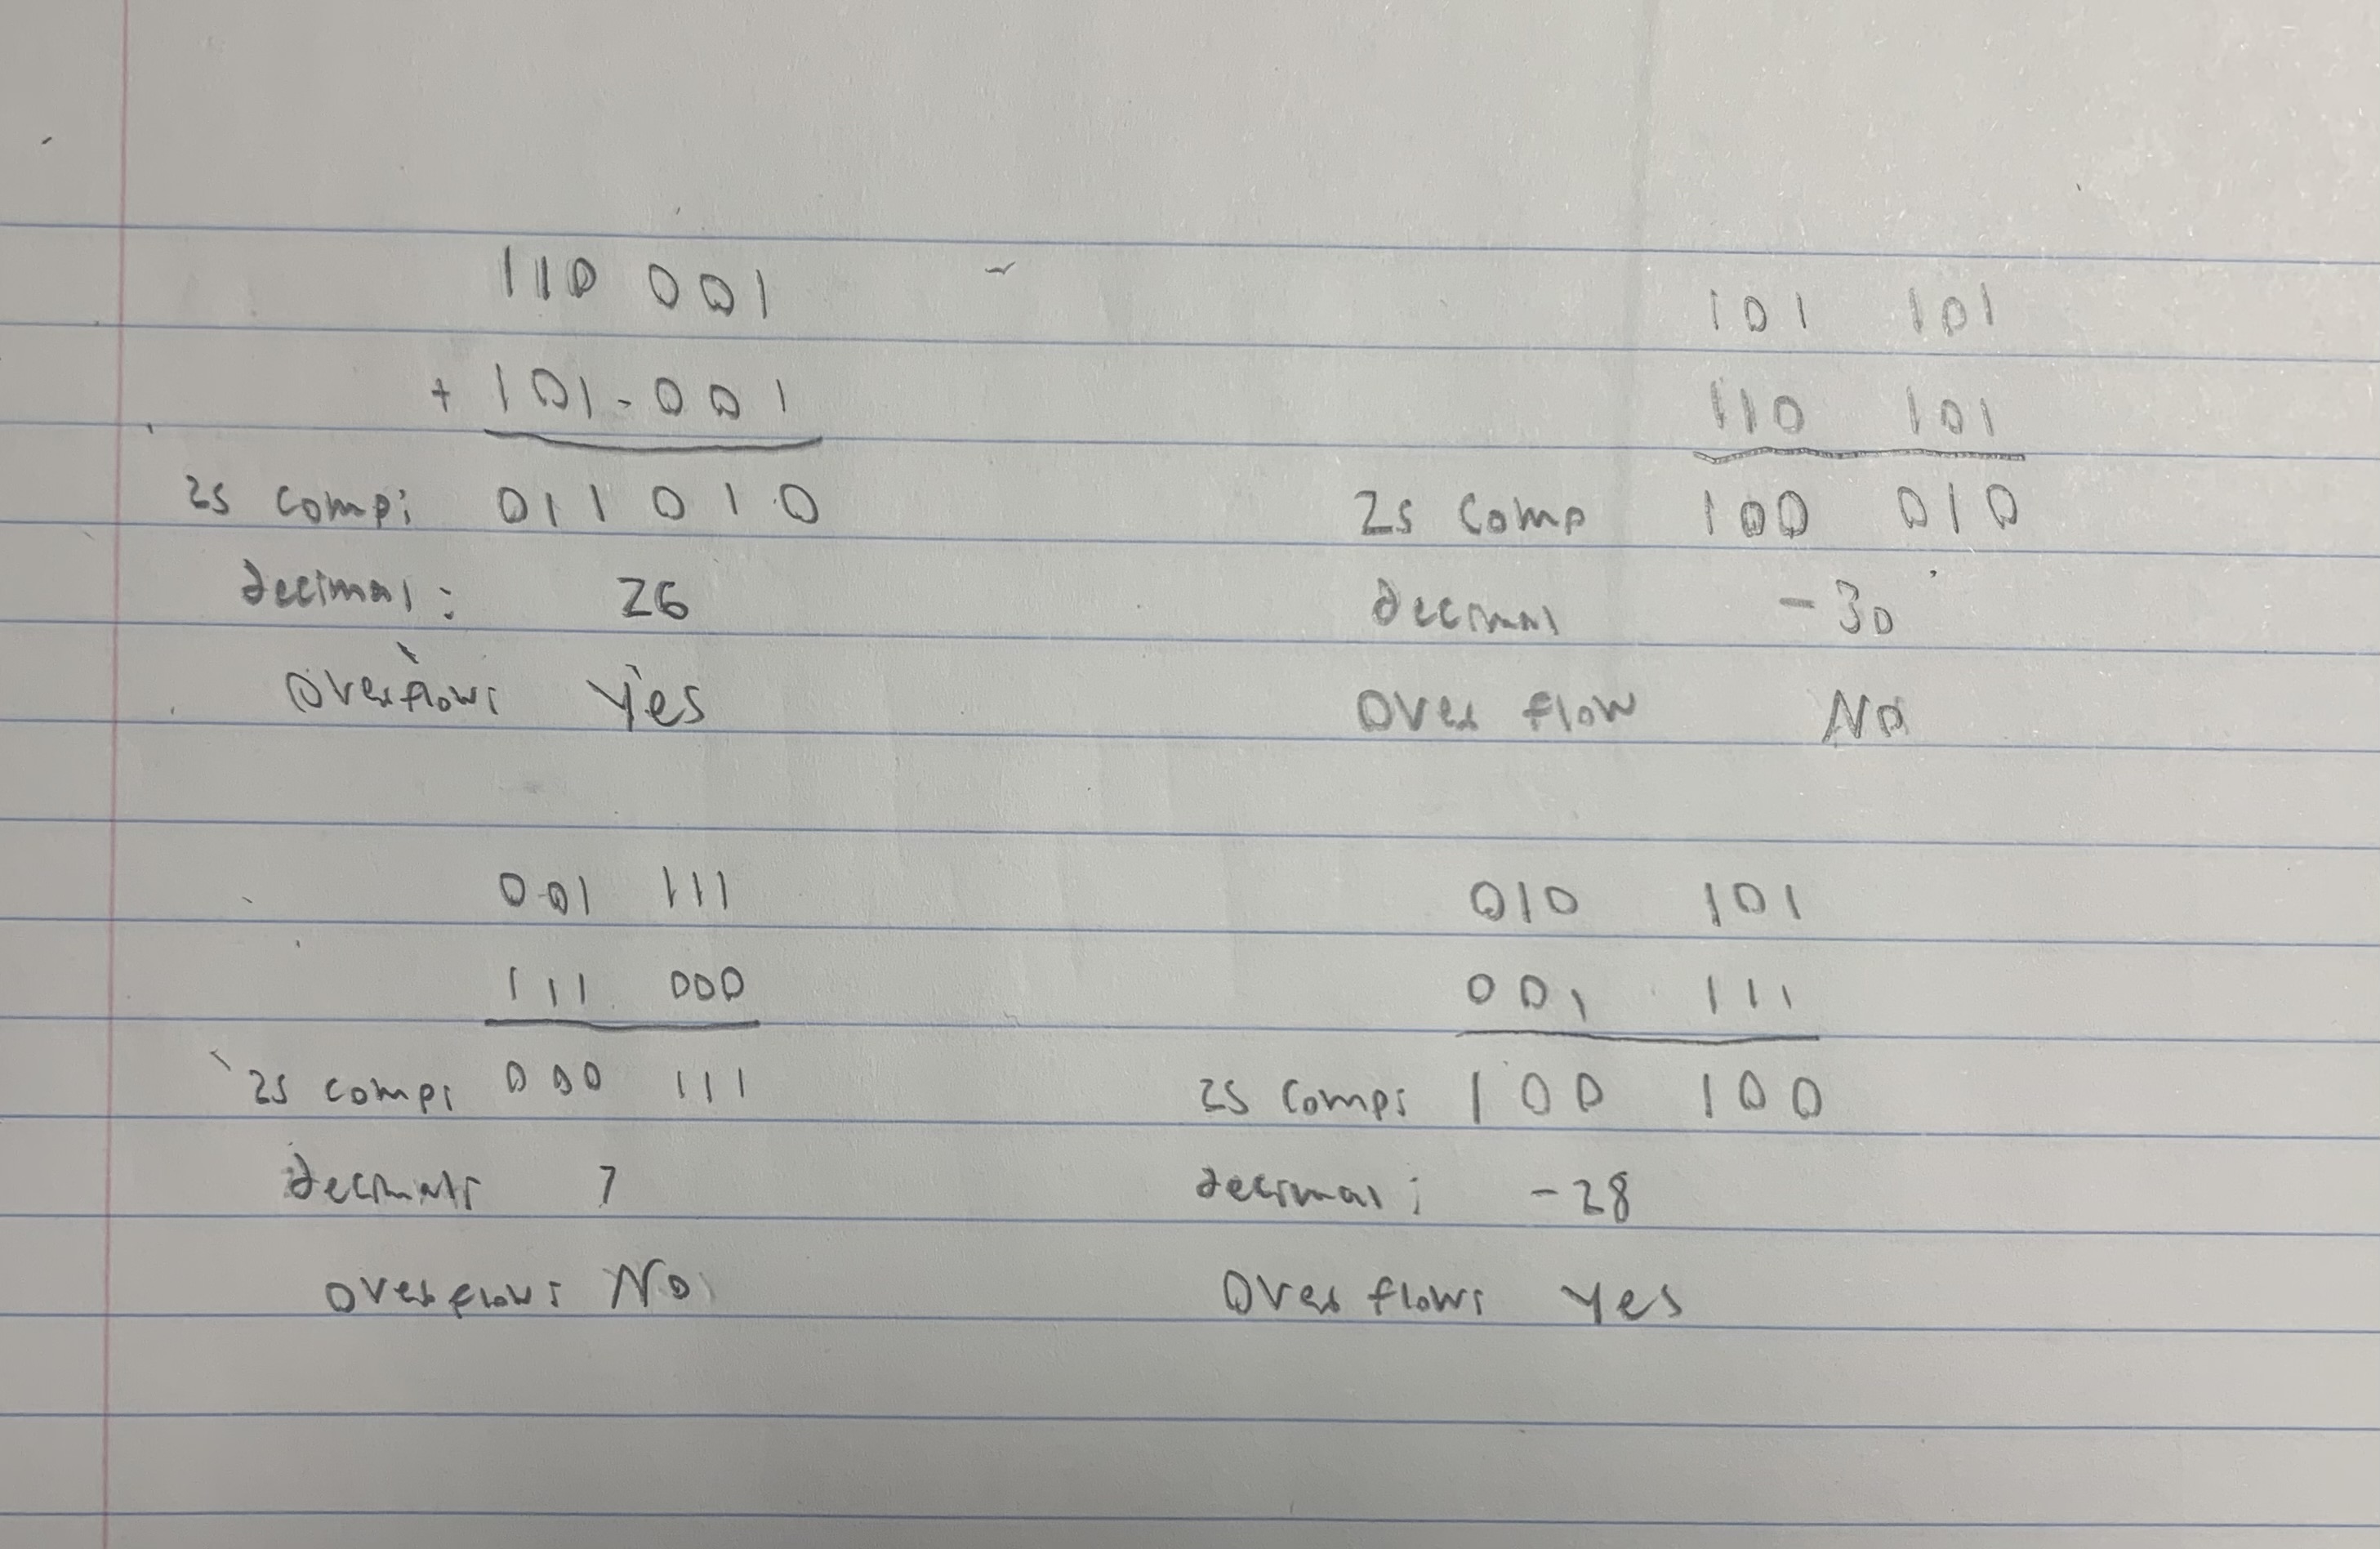 110 001
+ 101-001
2s comp: 011010
decimal: 26
Overflow: Yes
101 101
110 101
2s Comp 100 010
decimal -30
Over flow No
001 111
111 000
2s comp: 000 111
decimal: 7
Overflow: No
010 101
001 111
2s comp: 100 100
decimal: -28
Over flow: Yes